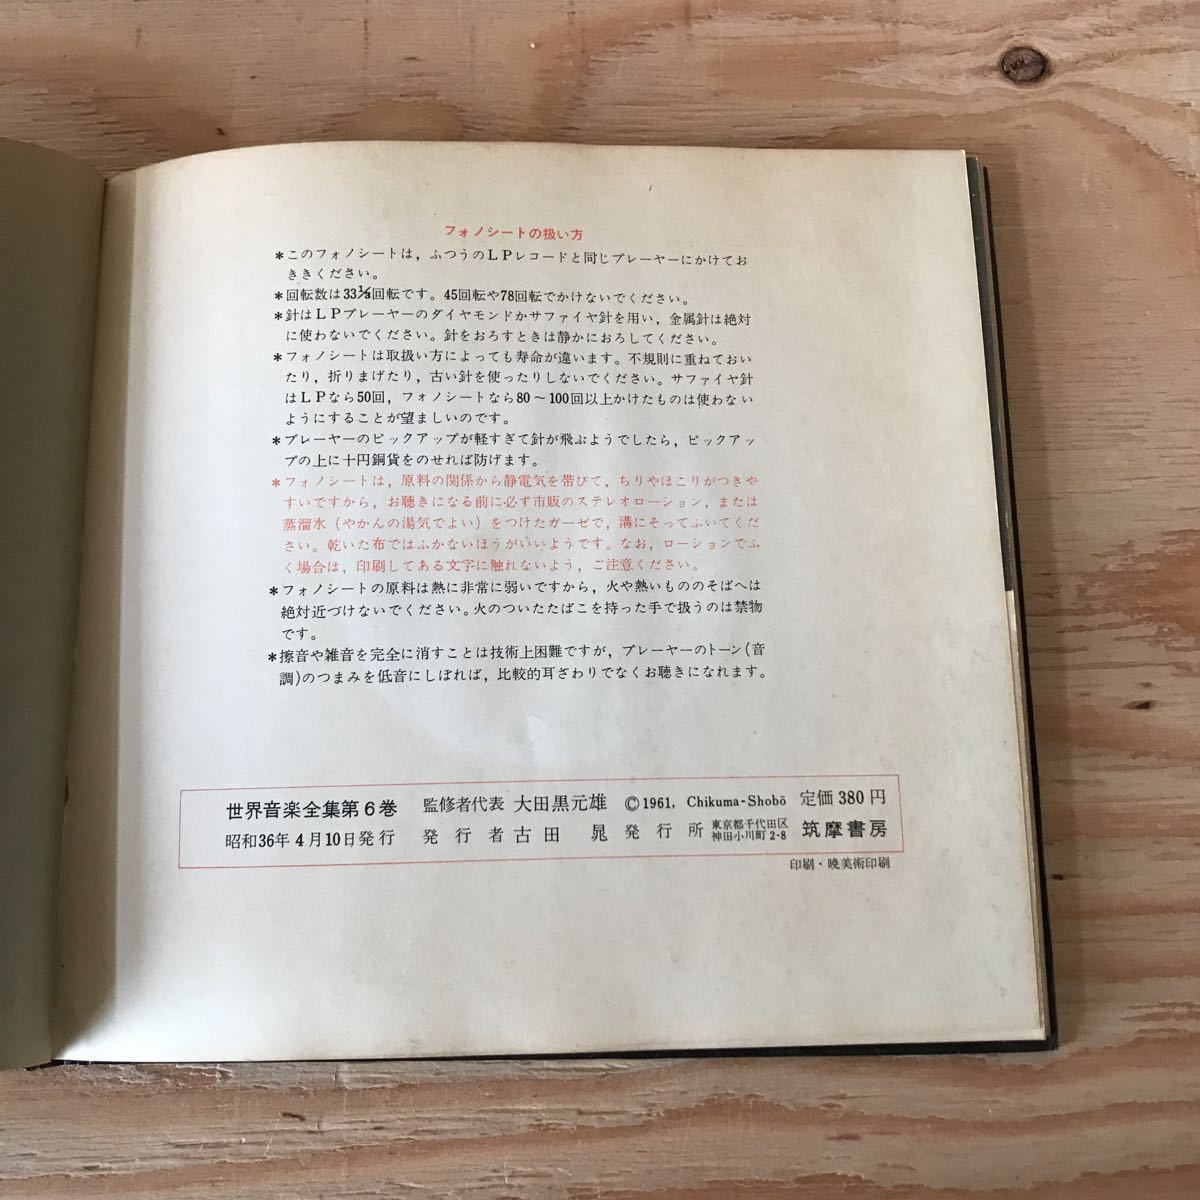 フォノシートの扱い方
＊このフォノシートは，ふつうのＬＰレコードと同じプレーヤーにかけてお
ききください。
＊回転数は33⅓回転です。45回転や78回転でかけないでください。
＊針はＬＰプレーヤーのダイヤモンドかサファイヤ針を用い，金属針は絶対
に使わないでください。針をおろすときは静かにおろしてください。
＊フォノシートは取扱い方によっても寿命が違います。不規則に重ねておい
たり，折りまげたり，古い針を使ったりしないでください。サファイヤ針
はＬＰなら50回，フォノシートなら80～100回以上かけたものは使わない
ようにすることが望ましいのです。
＊プレーヤーのピックアップが軽すぎて針が飛ぶようでしたら，ピックアッ
プの上に十円銅貨をのせれば防げます。
＊フォノシートは，原料の関係から静電気を帯びて，ちりやほこりがつきや
すいですから，お聴きになる前に必ず市販のステレオローション，または
蒸溜水（やかんの湯気でよい）をつけたガーゼで，溝にそってふいてくだ
さい。乾いた布ではふかないほうがいいようです。なお，ローションでふ
く場合は，印刷してある文字に触れないよう，ご注意ください。
＊フォノシートの原料は熱に非常に弱いですから，火や熱いもののそばへは
絶対近づけないでください。火のついたたばこを持った手で扱うのは禁物
です。
＊擦音や雑音を完全に消すことは技術上困難ですが，プレーヤーのトーン(音
調)のつまみを低音にしぼれば，比較的耳ざわりでなくお聴きになれます。
世界音楽全集第６巻 監修者代表 大田黒元雄 ©1961, Chikuma-Shobō 定価 380 円
昭和36年４月10日発行 発行者 古田 晁 発行所 東京都千代田区神田小川町2-8 筑摩書房
印刷・暁美術印刷